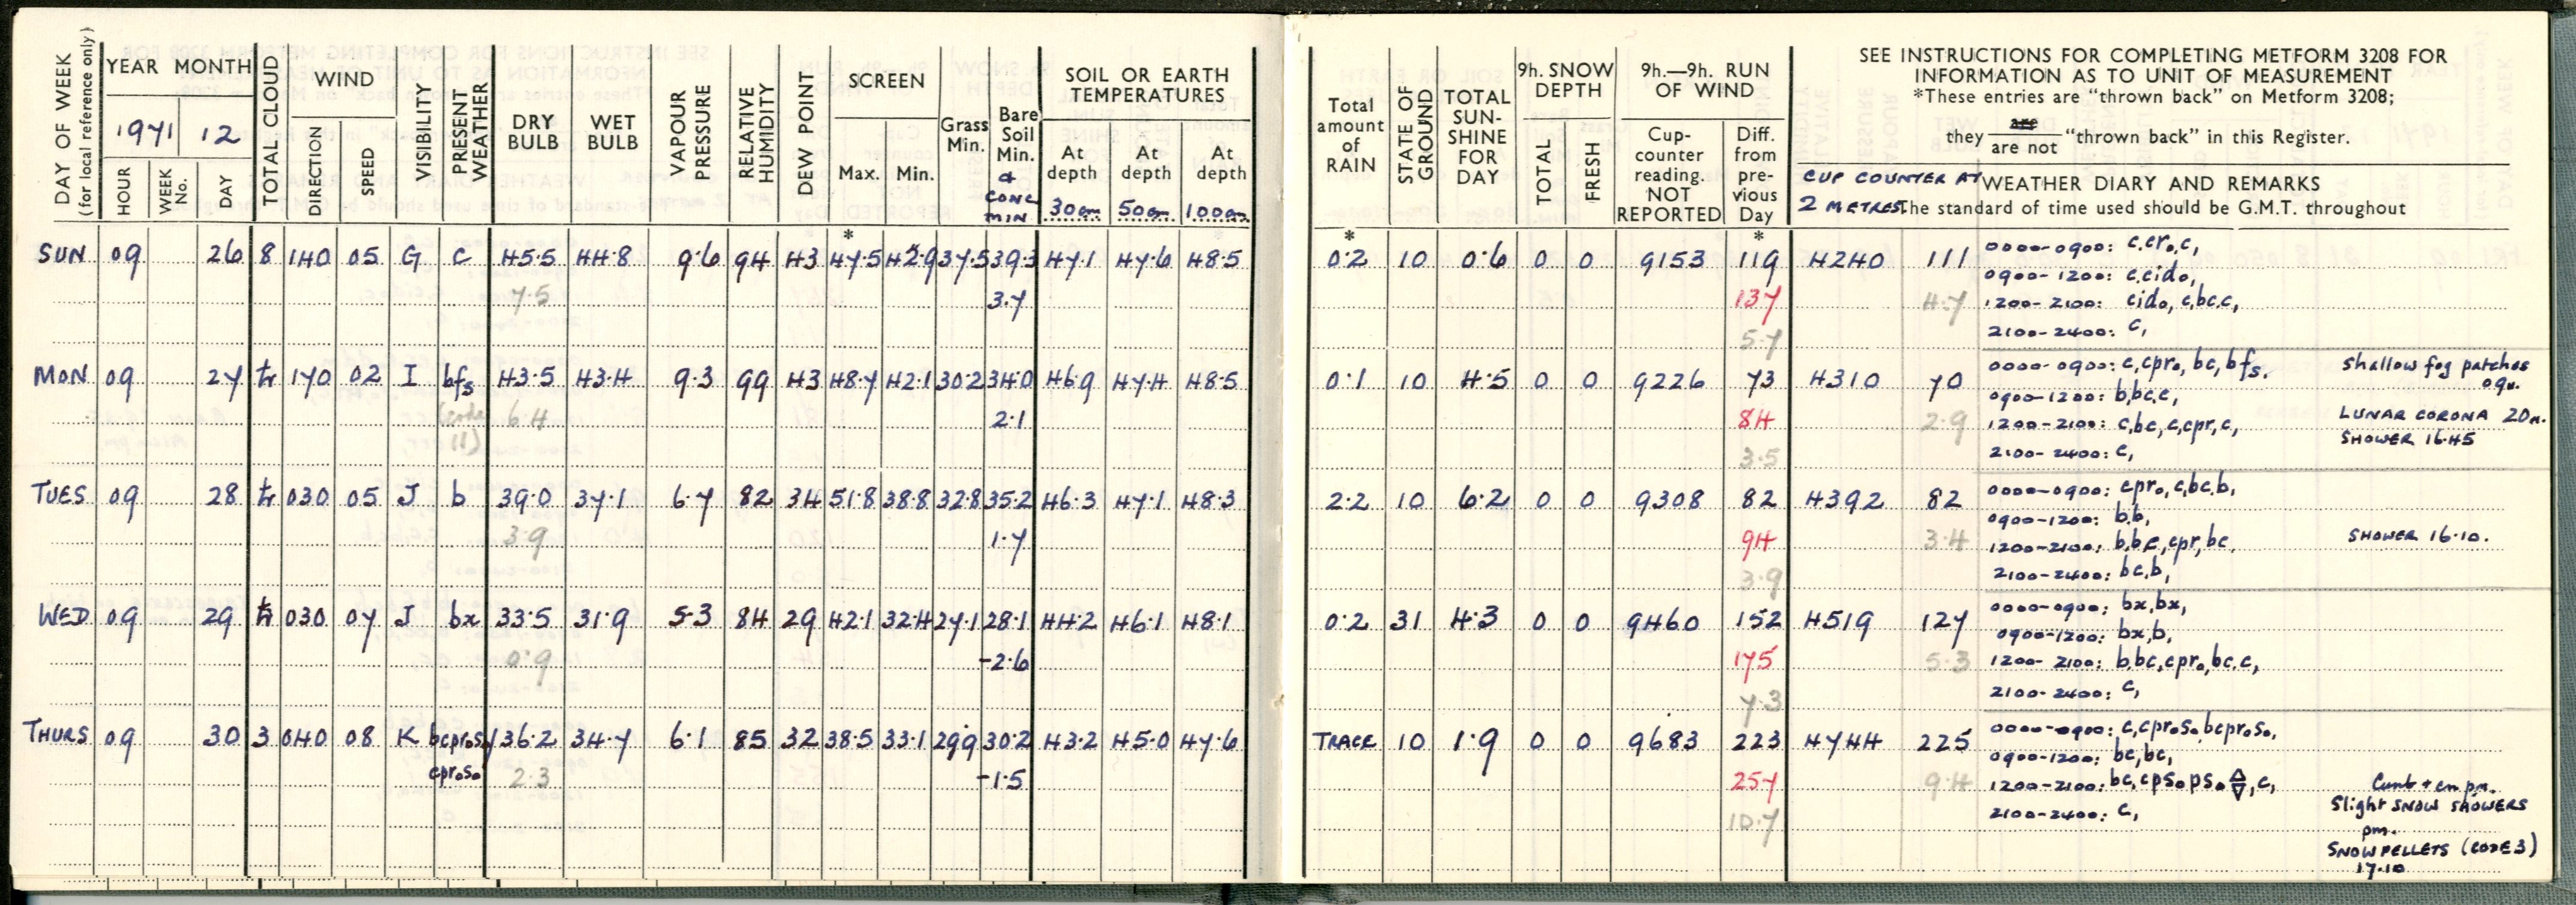 DAY OF WEEK
(for local reference only)
YEAR MONTH
1971 12
HOUR
WEEK No.
DAY
TOTAL CLOUD
WIND
DIRECTION
SPEED
VISIBILITY
PRESENT WEATHER
DRY BULB
WET BULB
VAPOUR PRESSURE
RELATIVE HUMIDITY
DEW POINT
SCREEN
Max. Min.
Grass Min.
Bare Soil Min.
& CONC MIN
SOIL OR EARTH TEMPERATURES
At depth 30cm
At depth 50cm
At depth 100cm
SUN 09 26 8 140 05 G c 45.5 44.8 9.6 94 43 47.5 42.9 37.5 39.3 47.1 47.6 48.5
7.5 3.7
MON 09 27 tr 170 02 I bfs 43.5 43.4 9.3 99 43 48.7 42.1 30.2 34.0 46.9 47.4 48.5
(code 6.4 2.1
11)
TUES 09 28 tr 030 05 J b 39.0 37.1 6.7 82 34 51.8 38.8 32.8 35.2 46.3 47.1 48.3
3.9 1.7
WED 09 29 tr 030 07 J bx 33.5 31.9 5.3 84 29 42.1 32.4 27.1 28.1 44.2 46.1 48.1
0.9 -2.6
THURS 09 30 3 040 08 K bcproso/ 36.2 34.7 6.1 85 32 38.5 33.1 29.9 30.2 43.2 45.0 47.6
cproso 2.3 -1.5
Total amount of RAIN
STATE OF GROUND
TOTAL SUN-SHINE FOR DAY
9h. SNOW DEPTH
TOTAL
FRESH
9h.—9h. RUN OF WIND
Cup-counter reading. NOT REPORTED
Diff. from pre-vious Day
SEE INSTRUCTIONS FOR COMPLETING METFORM 3208 FOR
INFORMATION AS TO UNIT OF MEASUREMENT
*These entries are "thrown back" on Metform 3208;
they are / are not "thrown back" in this Register.
CUP COUNTER AT
2 METRES
WEATHER DIARY AND REMARKS
The standard of time used should be G.M.T. throughout
0.2 10 0.6 0 0 9153 119 4240 111 0000-0900: c,cro,c,
0900-1200: c,cido,
137 4.7 1200-2100: cido, c,bc,c,
5.7 2100-2400: c,
0.1 10 4.5 0 0 9226 73 4310 70 0000-0900: c,cpro, bc, bfs. Shallow fog patches 09h.
0900-1200: b,bc,c,
84 2.9 1200-2100: c,bc,c,cpr,c, LUNAR CORONA 20h.
SHOWER 16.45
3.5 2100-2400: c,
2.2 10 6.2 0 0 9308 82 4392 82 0000-0900: cpro,c,bc,b,
0900-1200: b,b,
94 3.4 1200-2100: b,bc,cpr,bc, SHOWER 16.10.
3.9 2100-2400: bc,b,
0.2 31 4.3 0 0 9460 152 4519 127 0000-0900: bx,bx,
0900-1200: bx,b,
175 5.3 1200-2100: b,bc,cpro,bc,c,
7.3 2100-2400: c,
TRACE 10 1.9 0 0 9683 223 4744 225 0000-0900: c,cproso, bcproso,
0900-1200: bc,bc,
257 9.4 1200-2100: bc,cpso pso, c, Cumb + en pm.
Slight SNOW SHOWERS
10.7 2100-2400: c, pm.
SNOW PELLETS (CODE 3)
17.10